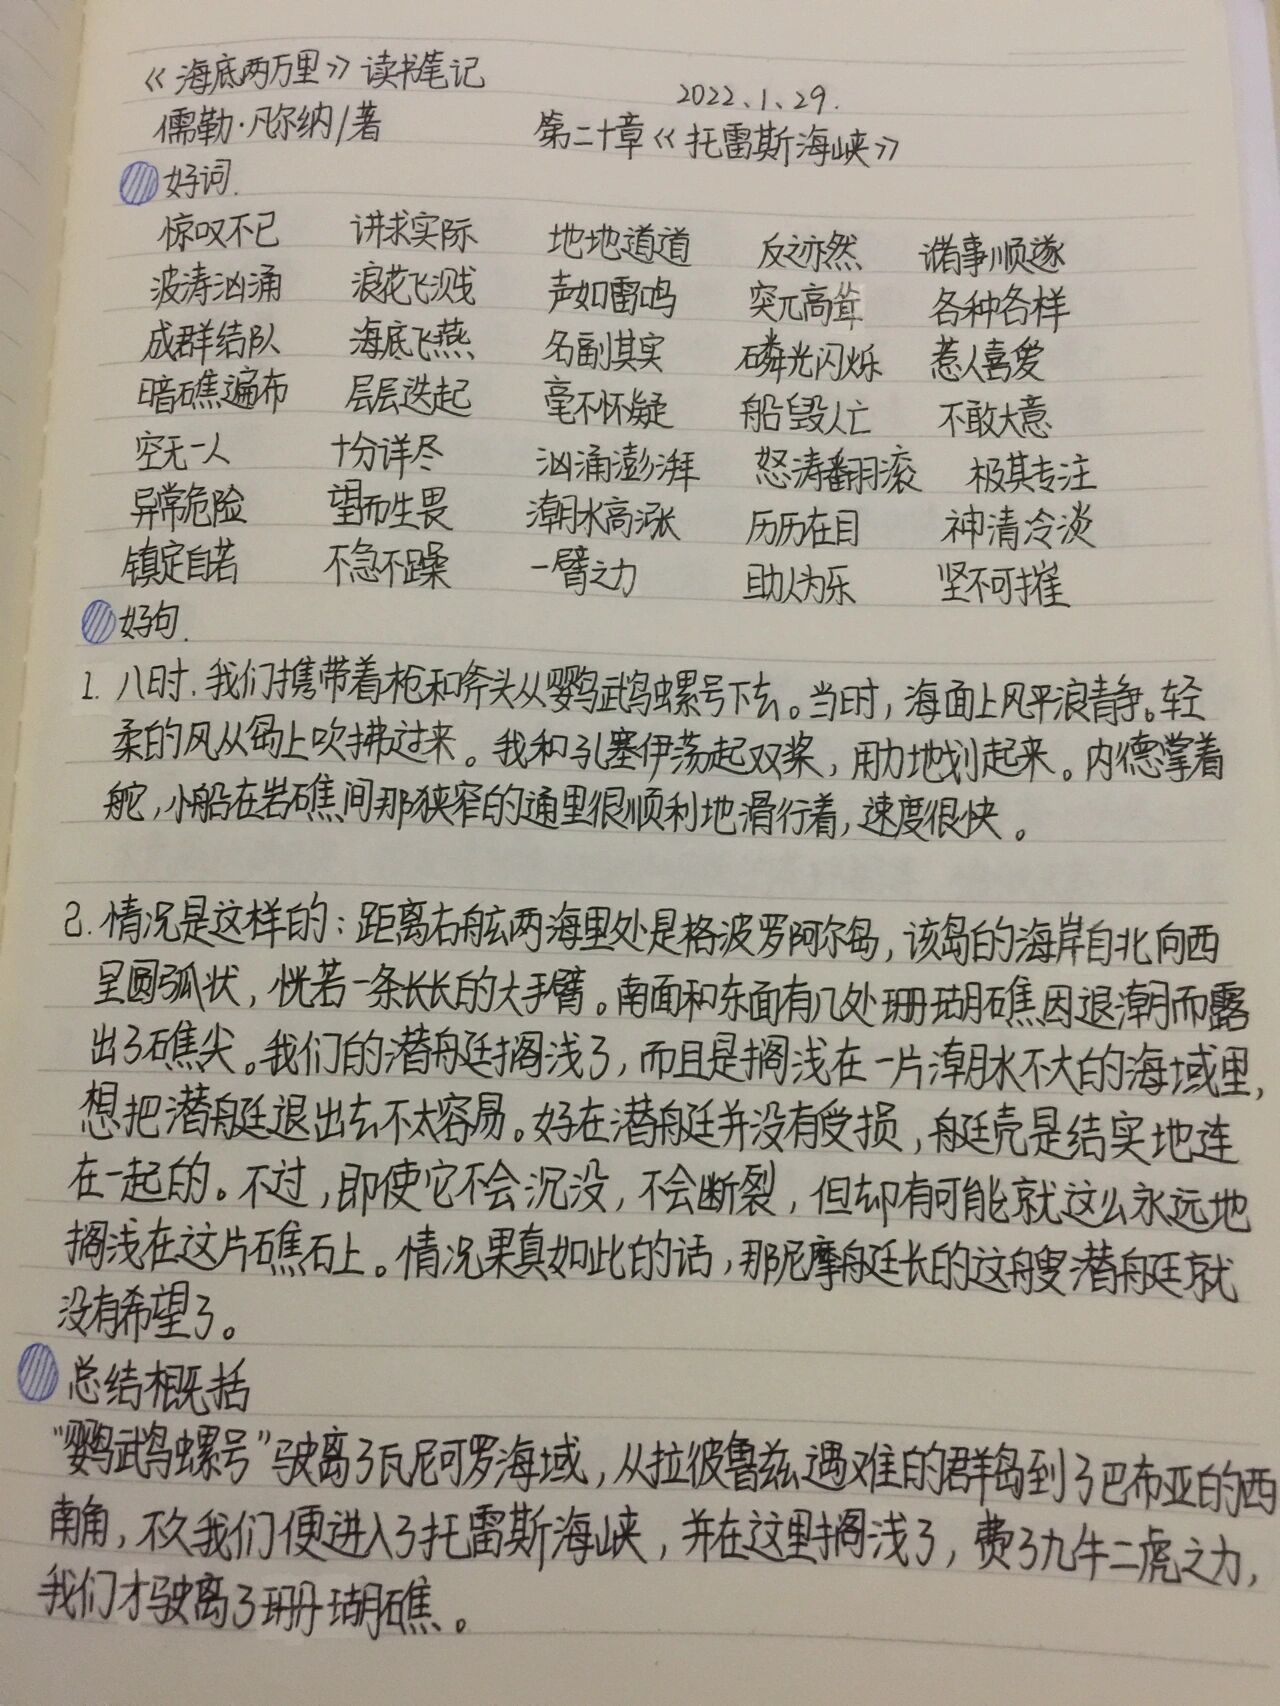 《海底两万里》读书笔记
2022、1、29.
儒勒·凡尔纳/著 第二十章《托雷斯海峡》
好词.
惊叹不已 讲求实际 地地道道 反之亦然 诸事顺遂
波涛汹涌 浪花飞溅 声如雷鸣 突兀高耸 各种各样
成群结队 海底飞燕 名副其实 磷光闪烁 惹人喜爱
暗礁遍布 层层迭起 毫不怀疑 船毁人亡 不敢大意
空无一人 十分详尽 汹涌澎湃 怒涛翻滚 极其专注
异常危险 望而生畏 潮水高涨 历历在目 神清冷淡
镇定自若 不急不躁 一臂之力 助人为乐 坚不可摧
好句.
1. 八时.我们携带着枪和斧头从鹦鹉螺号下去。当时,海面上风平浪静。轻
柔的风从岛上吹拂过来。我和孔塞伊荡起双桨,用力地划起来。内德掌着
舵,小船在岩礁间那狭窄的通里很顺利地滑行着,速度很快。
2. 情况是这样的:距离右舷两海里处是格波罗阿尔岛,该岛的海岸自北向西
呈圆弧状,恍若一条长长的大手臂。南面和东面有几处珊瑚礁因退潮而露
出了礁尖。我们的潜艇搁浅了,而且是搁浅在一片潮水不大的海域里,
想把潜艇退出去不太容易。好在潜艇并没有受损,艇壳是结实地连
在一起的。不过,即使它不会沉没,不会断裂,但却有可能就这么永远地
搁浅在这片礁石上。情况果真如此的话,那尼摩艇长的这艘潜艇就
没有希望了。
总结概括
“鹦鹉螺号”驶离了瓦尼可罗海域,从拉彼鲁兹遇难的群岛到了巴布亚的西
南角,不久我们便进入了托雷斯海峡,并在这里搁浅了,费了九牛二虎之力,
我们才驶离了珊瑚礁。